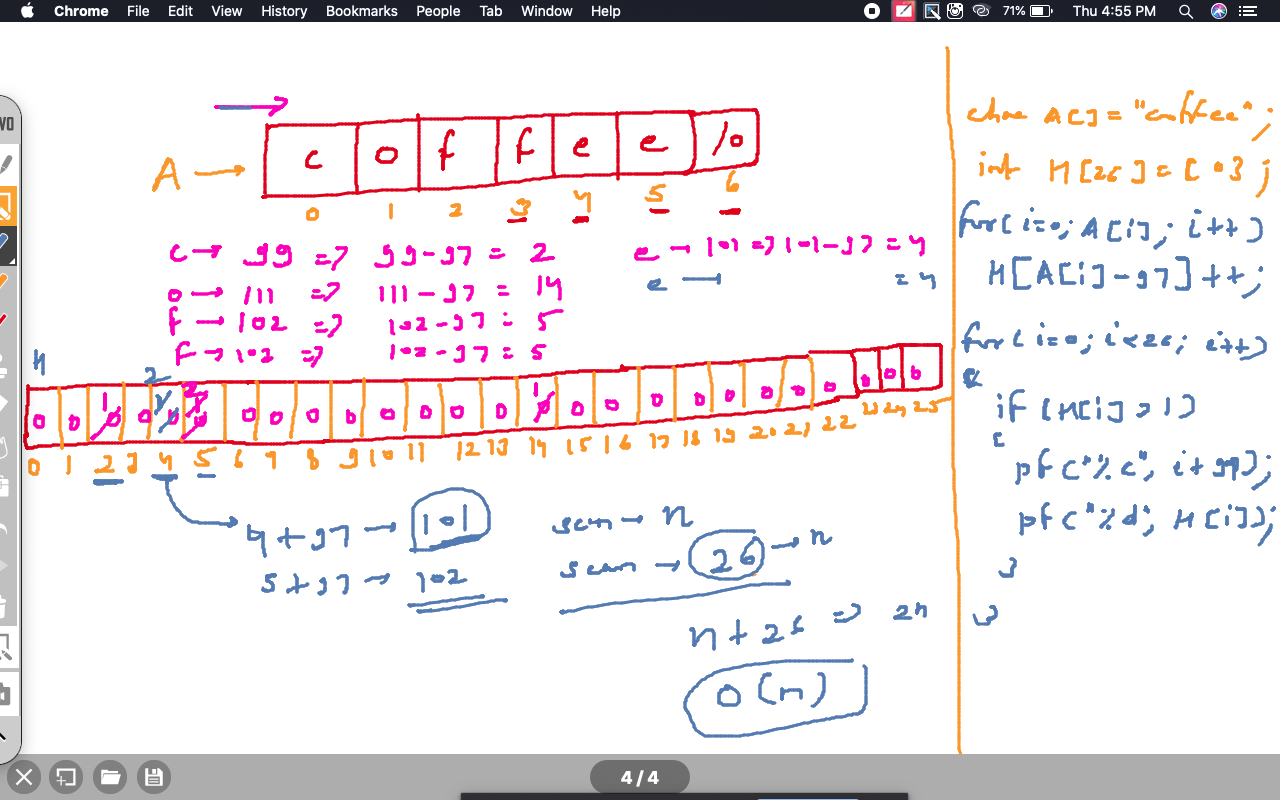 Chrome File Edit View History Bookmarks People Tab Window Help 71% Thu 4:55 PM
A → c o f f e e \0
0 1 2 3 4 5 6
c → 99 => 99-97 = 2
o → 111 => 111-97 = 14
f → 102 => 102-97 = 5
f → 102 => 102-97 = 5
e → 101 => 101-97 = 4
e → = 4
H
2 2
1 1 1 1
0 0 0 0 0 0 0 0 0 0 0 0 0 0 0 0 0 0 0 0 0 0 0 0 0 0
0 1 2 3 4 5 6 7 8 9 10 11 12 13 14 15 16 17 18 19 20 21 22 23 24 25
4+97 → 101
5+97 → 102
scan → n
scan → 26 → n
n+26 => 2n
O(n)
char A[] = "coffee";
int H[26] = {0};
for(i=0; A[i]; i++)
H[A[i]-97]++;
for(i=0; i<26; i++)
{
if(H[i]>1)
{
pf("%c", i+97);
pf("%d", H[i]);
}
}
4/4